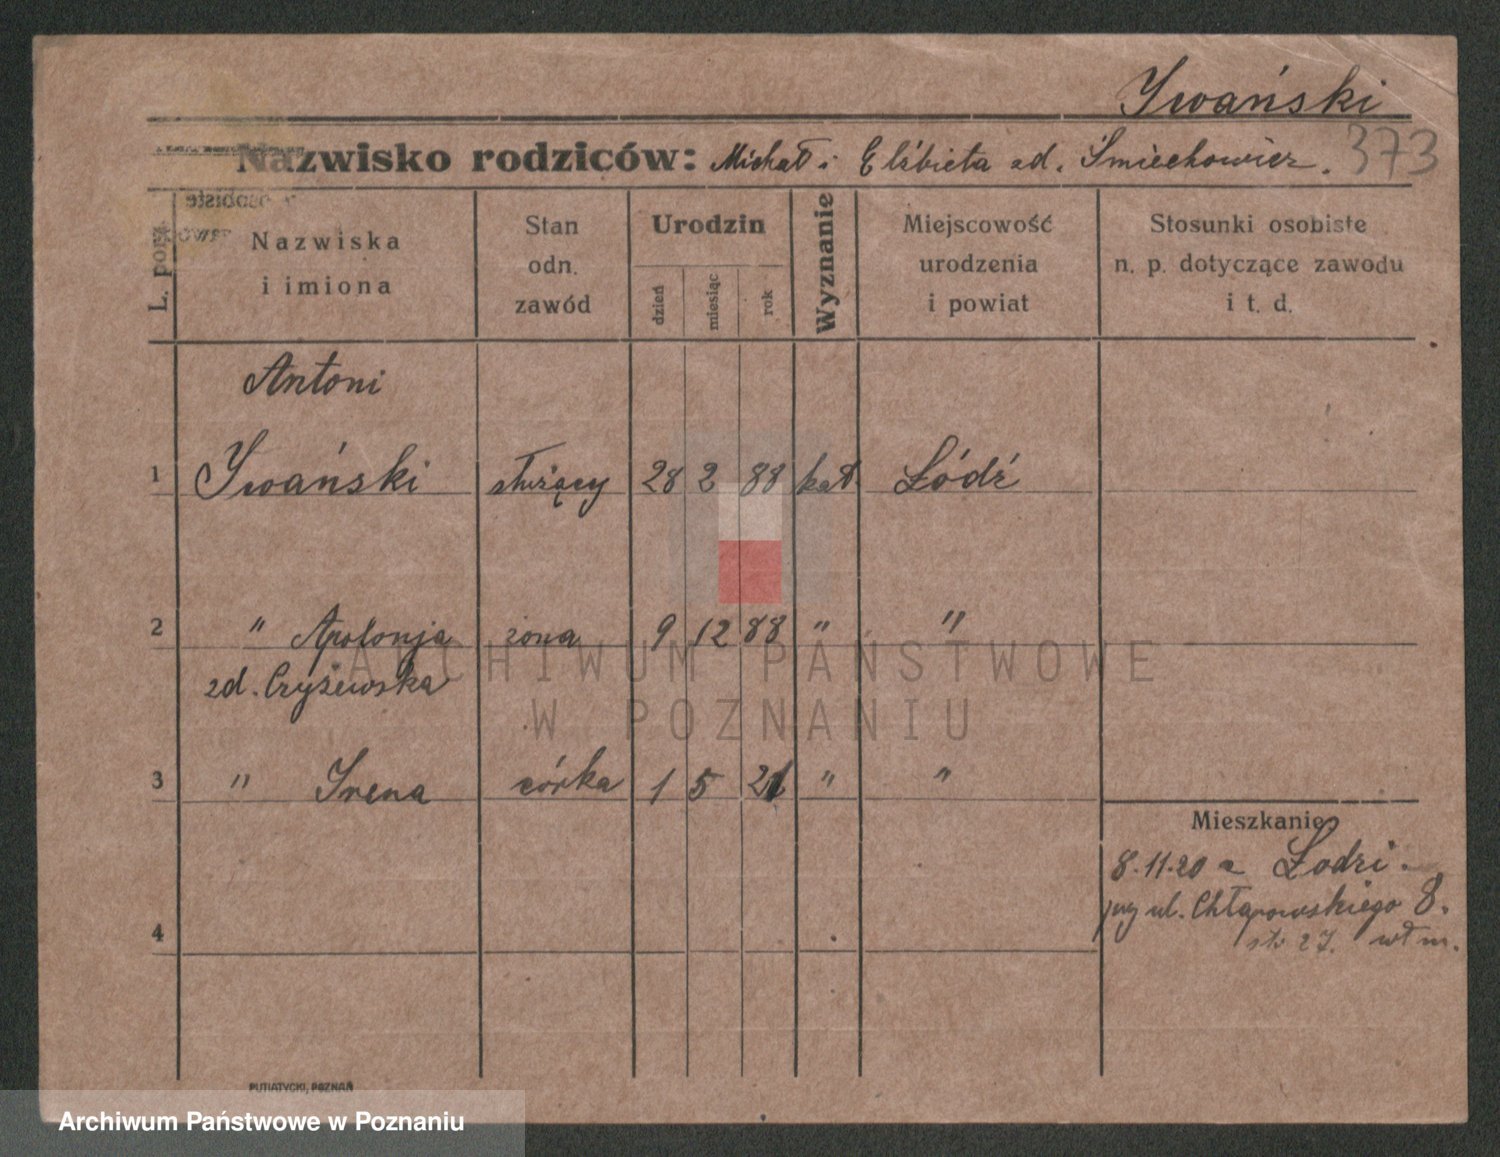 Iwański
373
Nazwisko rodziców: Michał i Elżbieta zd. Śmiechowicz.
L. porz. Nazwiska i imiona Stan odn. zawód Urodzin dzień miesiąc rok Wyznanie Miejscowość urodzenia i powiat Stosunki osobiste n. p. dotyczące zawodu i t. d.
Antoni
1 Iwański służący 28 2 88 kat. Łódź
2 " Apolonja żona 9 12 88 " "
zd. Czyżewska
3 " Irena córka 1 5 21 " "
Mieszkanie
8.11.20 z Łodzi.
ul. Chłapowskiego 8.
4
str 27. wł m.
PUTIATYCKI, POZNAŃ
ARCHIWUM PAŃSTWOWE
W POZNANIU
Archiwum Państwowe w Poznaniu